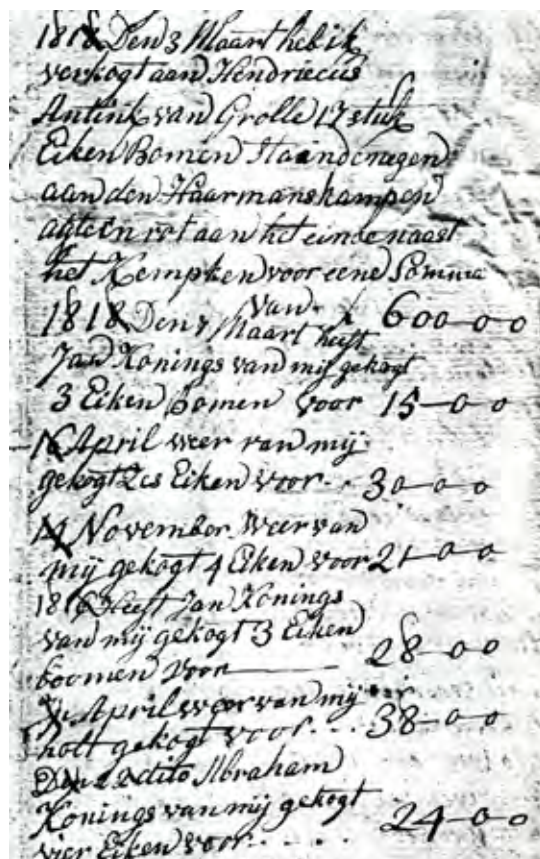 1818 Den 3 Maart heb ik
verkogt aan Hendriecus
Antink van Grolle 17 stuk
Eiken Bomen Staande negen
aan den Haarmanskampen
agt en rst aan het einde naast
het Kempken voor eene Somma
van f 600-0-0
1818 Den Maart heeft
Jan Konings van mij gekogt
3 Eiken Bomen voor 15-0-0
16 April weer van mij
gekogt 2 es Eiken voor 30-0-0
14 November Weer van
mij gekogt 4 Eiken voor 21-0-0
1816 Heeft Jan Konings
van mij gekogt 3 Eiken
boomen voor 28-0-0
April weer van mij
holt gekogt voor... 38-0-0
Den 22 dito Abraham
Konings van mij gekogt
vier Eiken voor.... 24-0-0